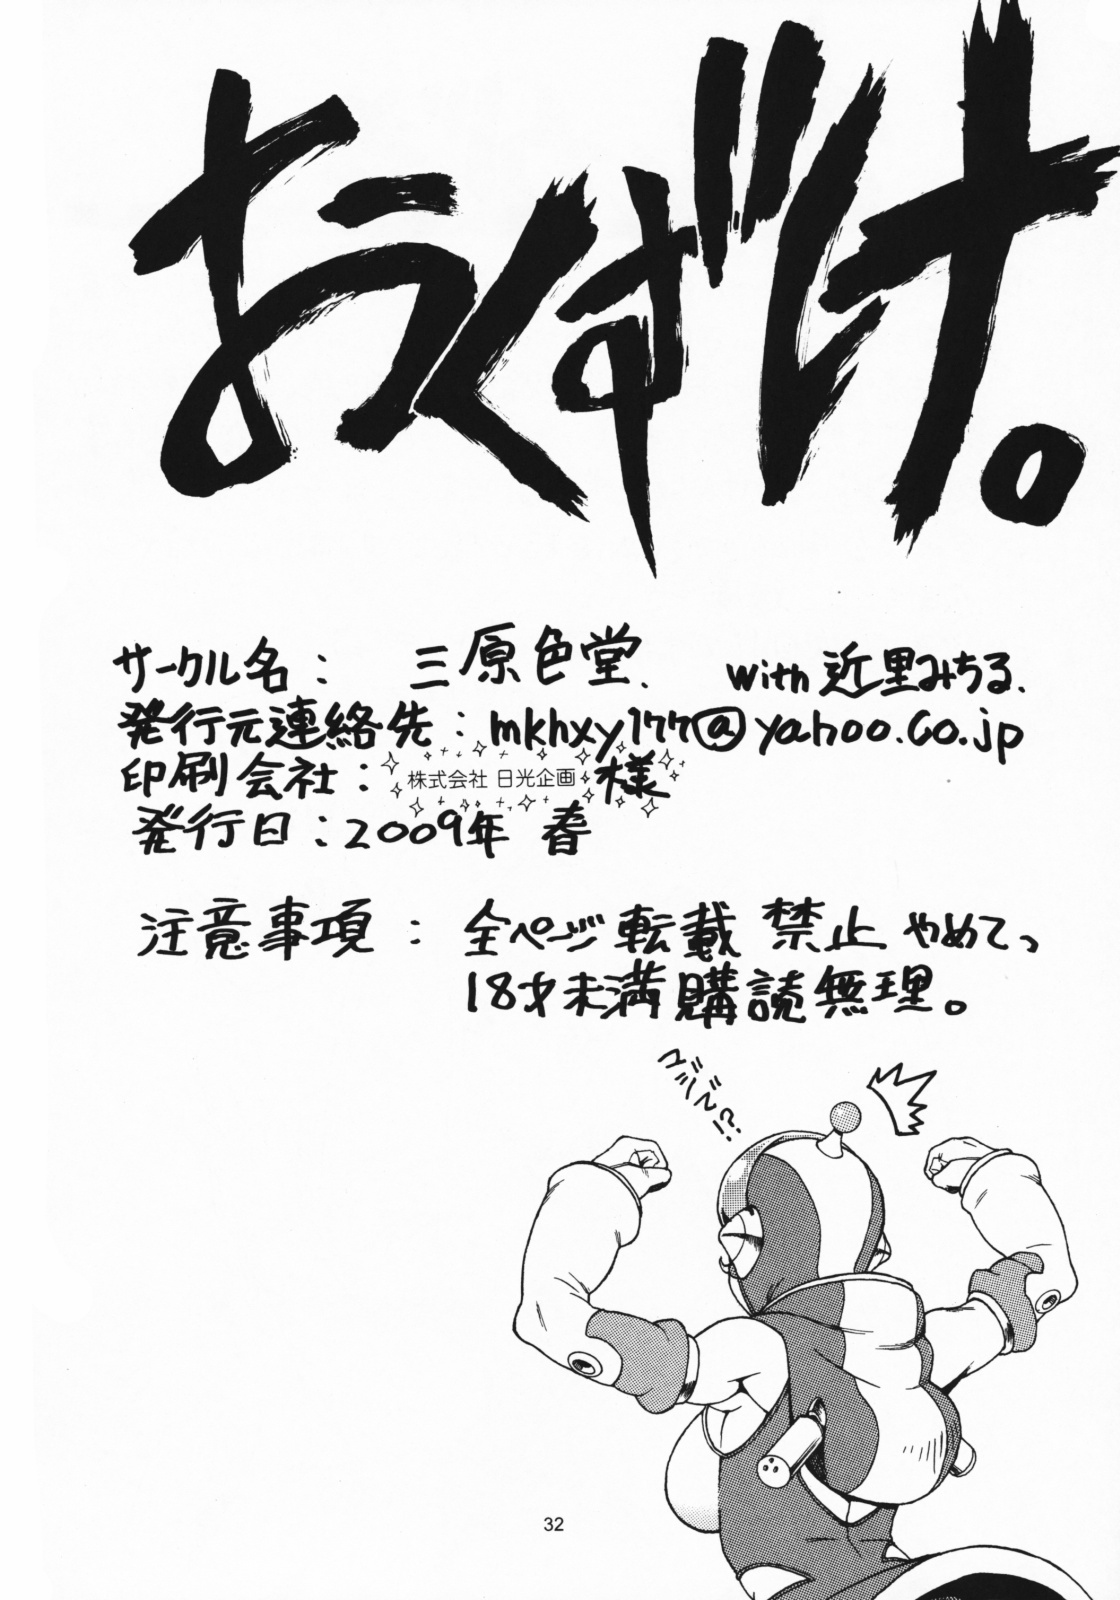 おくずけ。
サークル名： 三原色堂. with 近里みちる.
発行元連絡先：mkhxy177@yahoo.co.jp
印刷会社：株式会社 日光企画 様
発行日：2009年 春
注意事項： 全ページ転載 禁止 やめてっ
18才未満購読無理。
32